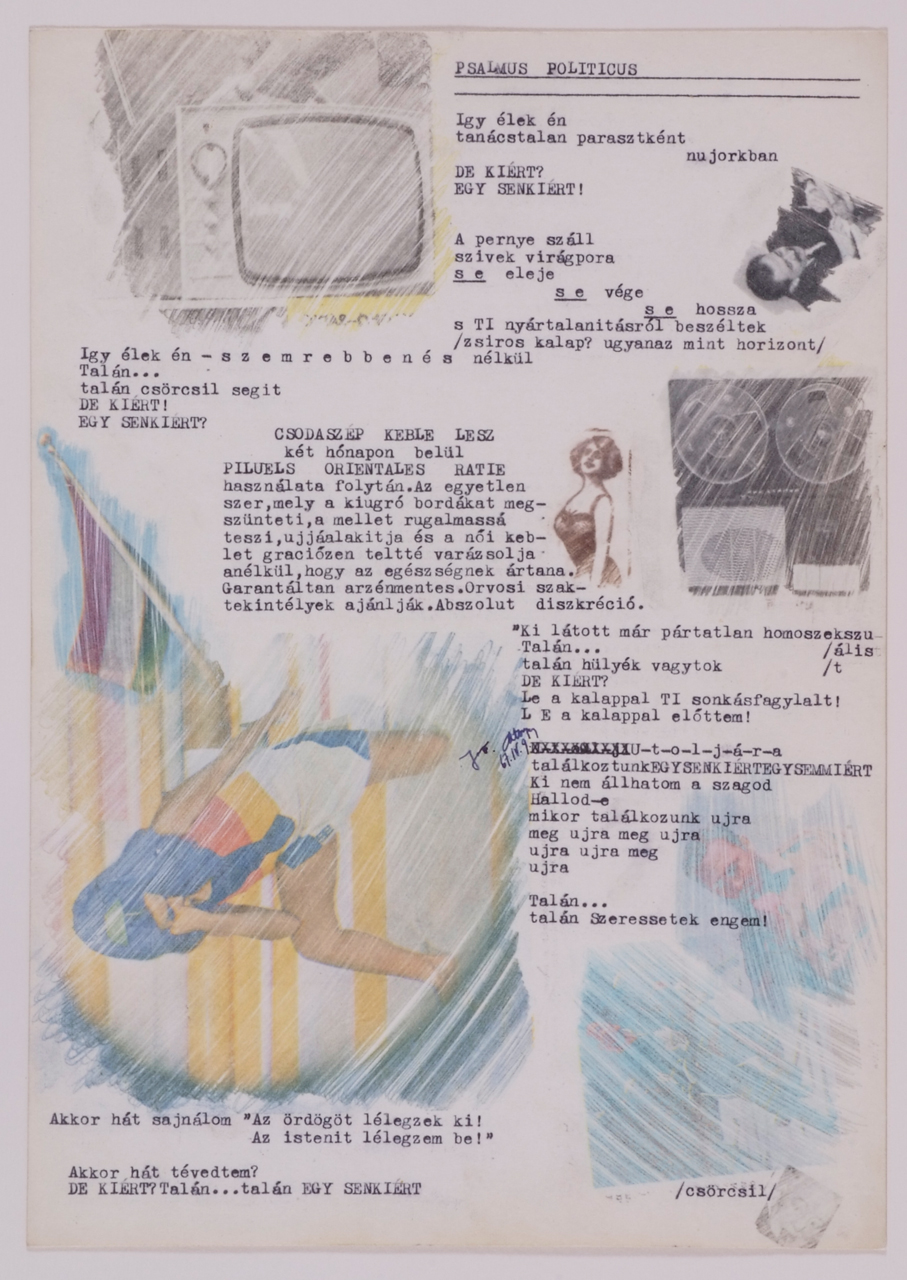 PSALMUS POLITICUS
Igy élek én
tanácstalan parasztként
nujorkban
DE KIÉRT?
EGY SENKIÉRT!
A pernye száll
szivek virágpora
s e eleje
s e vége
s e hossza
s TI nyártalanitásról beszéltek
/zsiros kalap? ugyanaz mint horizont/
Igy élek én - s z e m r e b b e n é s nélkül
Talán...
talán csörcsil segit
DE KIÉRT!
EGY SENKIÉRT?
CSODASZÉP KEBLE LESZ
két hónapon belül
PILUELS ORIENTALES RATIE
használata folytán.Az egyetlen
szer,mely a kiugró bordákat meg-
szünteti,a mellet rugalmassá
teszi,ujjáalakitja és a női keb-
let graciózen teltté varázsolja
anélkül,hogy az egészségnek ártana.
Garantáltan arzénmentes.Orvosi szak-
tekintélyek ajánlják.Abszolut diszkréció.
"Ki látott már pártatlan homoszekszu
Talán... /ális
talán hülyék vagytok /t
DE KIÉRT?
Le a kalappal TI sonkásfagylalt!
L E a kalappal előttem!
U-t-o-l-j-á-r-a
találkoztunkEGYSENKIÉRTEGYSEMMIÉRT
Ki nem állhatom a szagod
Hallod-e
mikor találkozunk ujra
meg ujra meg ujra
ujra ujra meg
ujra
Talán...
talán Szeressetek engem!
Akkor hát sajnálom "Az ördögöt lélegzek ki!
Az istenit lélegzem be!"
Akkor hát tévedtem?
DE KIÉRT?Talán...talán EGY SENKIÉRT
/csörcsil/